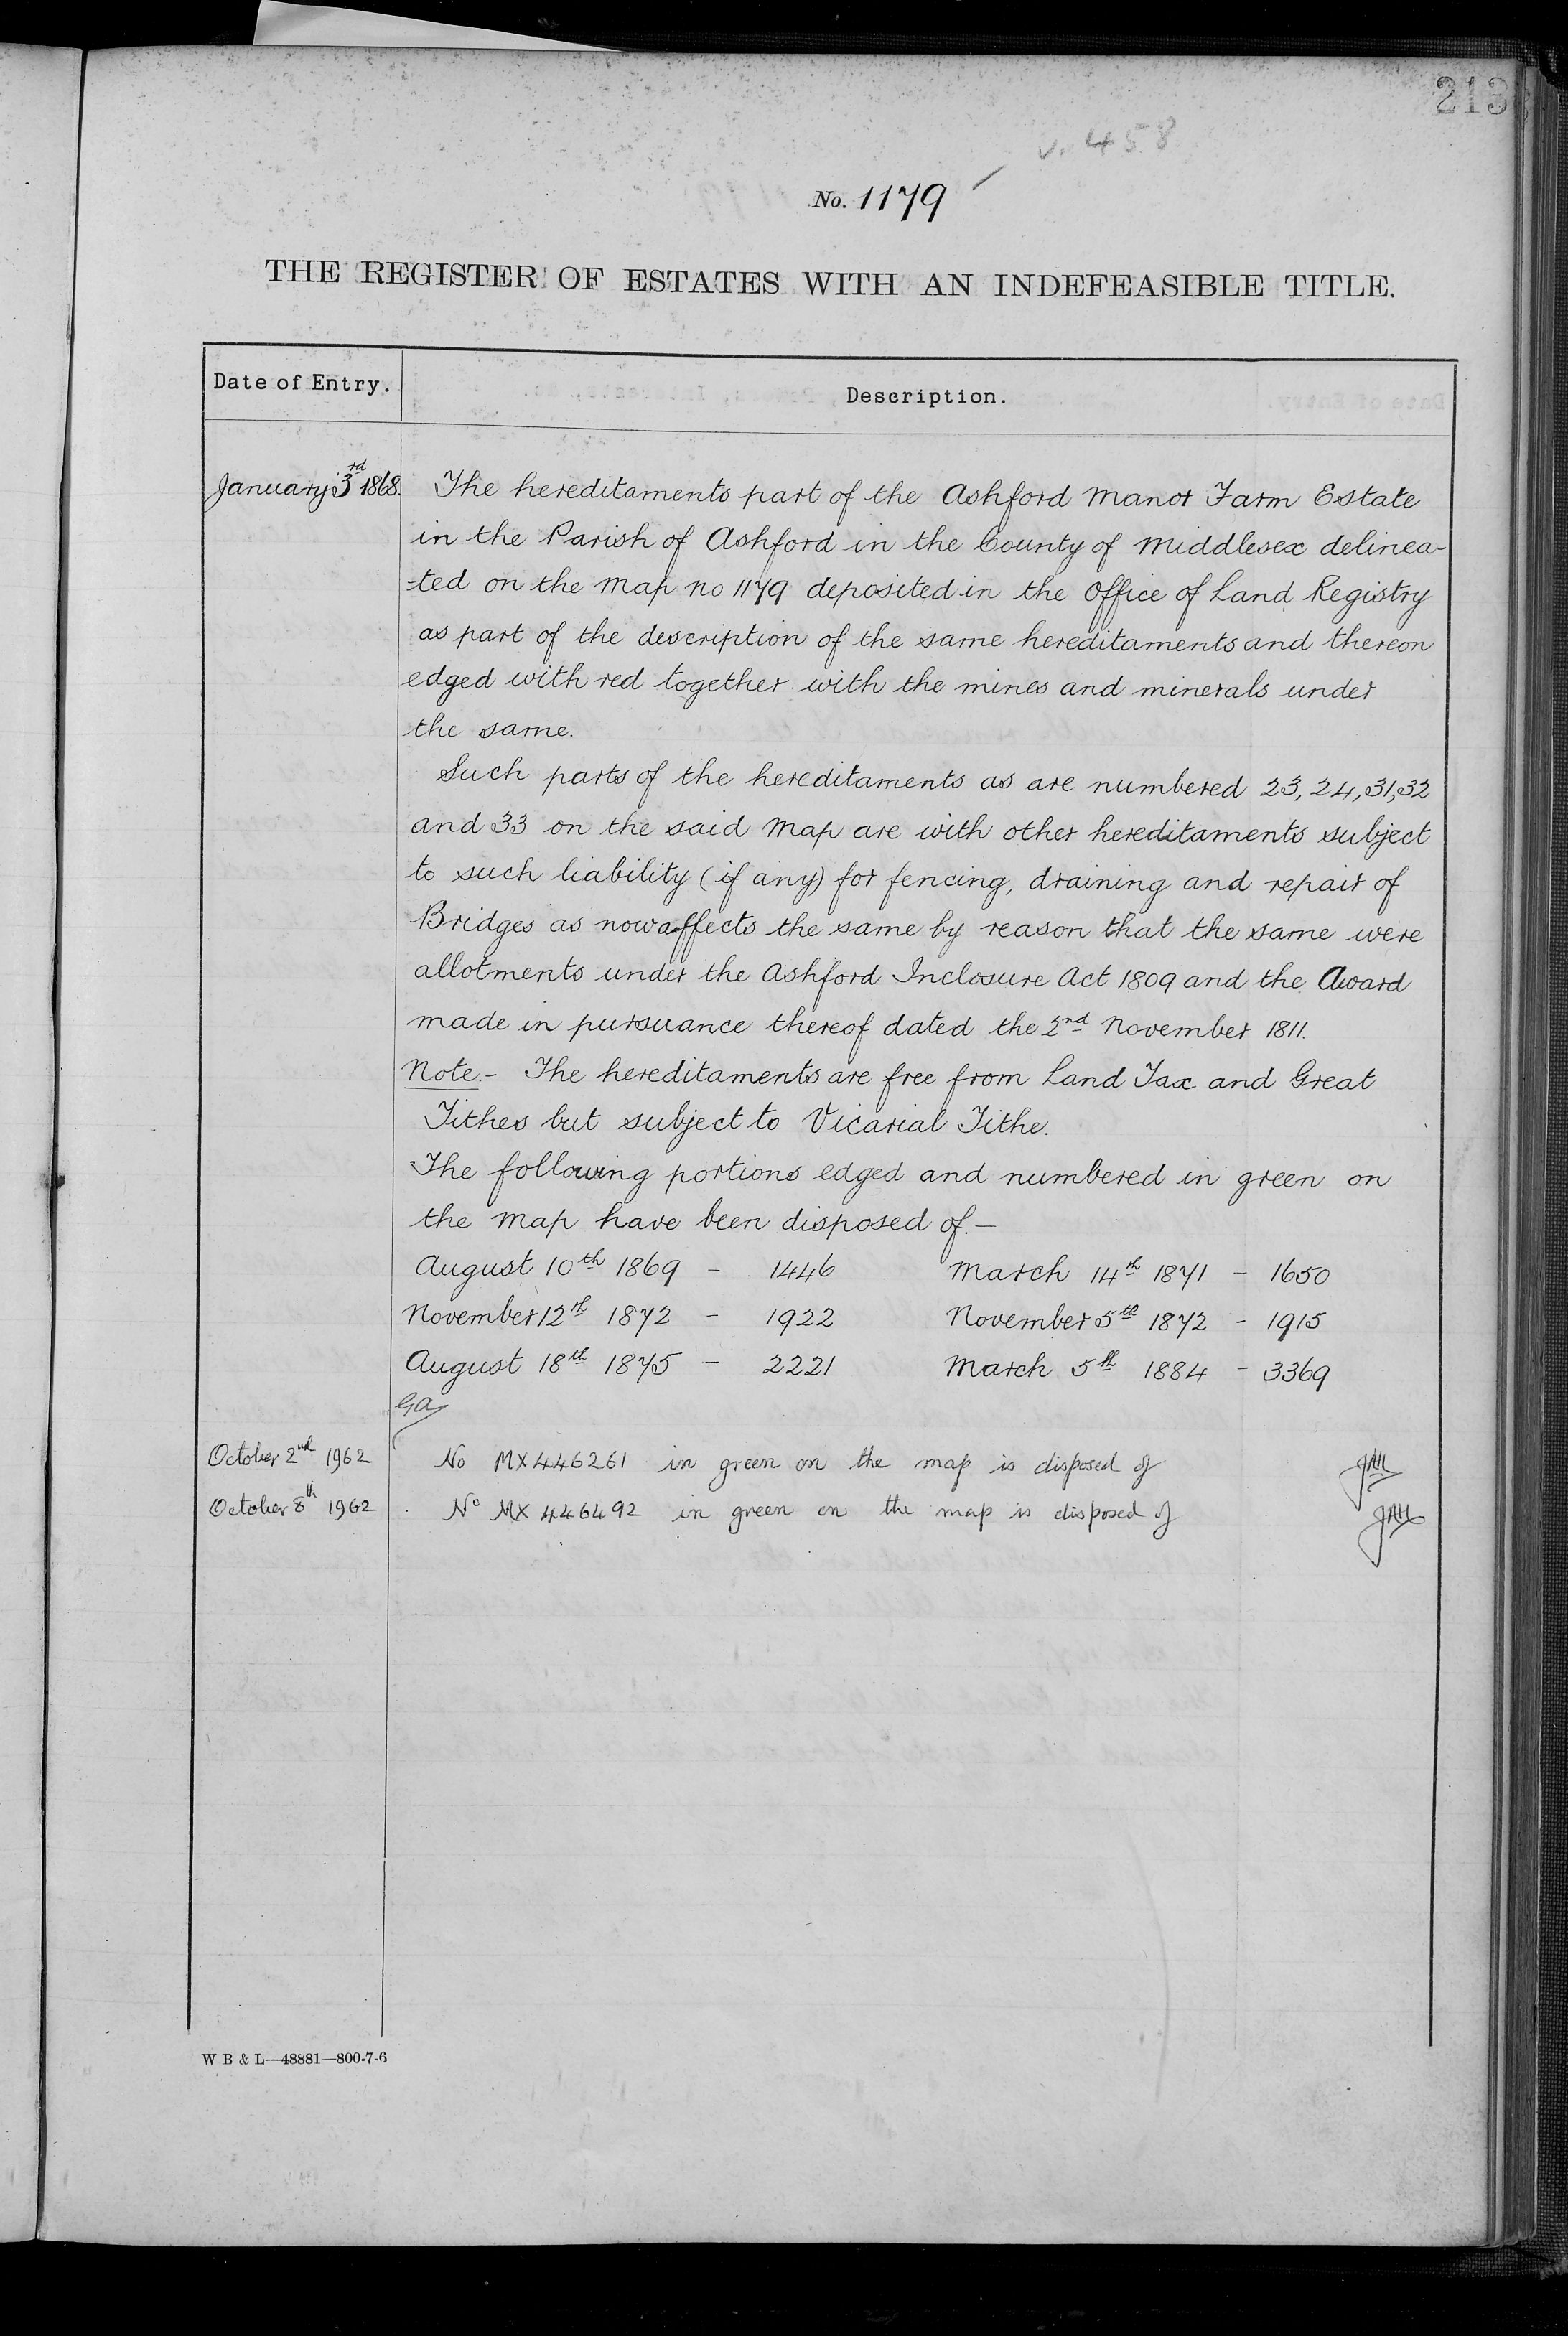 213
v. 458
No. 1179
THE REGISTER OF ESTATES WITH AN INDEFEASIBLE TITLE.
Date of Entry.
Description.
January 3rd 1868.
The hereditaments part of the Ashford Manor Farm Estate
in the Parish of Ashford in the County of Middlesex delinea-
-ted on the Map no 1179 deposited in the Office of Land Registry
as part of the description of the same hereditaments and thereon
edged with red together with the mines and minerals under
the same.
Such parts of the hereditaments as are numbered 23, 24, 31, 32
and 33 on the said Map are with other hereditaments subject
to such liability (if any) for fencing, draining and repair of
Bridges as now affects the same by reason that the same were
allotments under the Ashford Inclosure Act 1809 and the Award
made in pursuance thereof dated the 2nd November 1811.
Note.- The hereditaments are free from Land Tax and Great
Tithes but subject to Vicarial Tithe.
The following portions edged and numbered in green on
the Map have been disposed of.—
August 10th 1869 - 1446 March 14th 1871 - 1650
November 12th 1872 - 1922 November 5th 1872 - 1915
August 18th 1875 - 2221 March 5th 1884 - 3369
GA
October 2nd 1962 No MX446261 in green on the map is disposed of
October 8th 1962 No MX 446492 in green on the map is disposed of
W B & L—48881—800-7-6